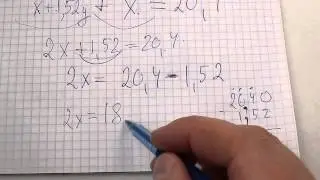 x+1,52+x=20,4
2x+1,52=20,4
2x= 20,4-1,52
20,40
2x=18
- 1,52